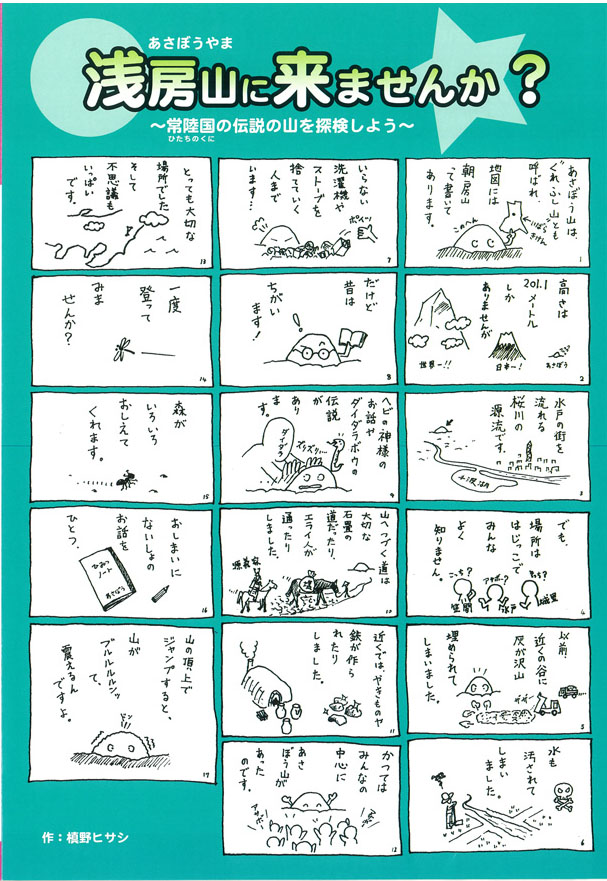 あさぼうやま
浅房山に来ませんか？
～常陸国の伝説の山を探検しよう～
ひたちのくに
あさぼう山は、
ぐれふし山とも
呼ばれ、
地図には
朝房山
って書いて
あります。
このへん
いばらきけん
1
高さは
201.1
メートル
しか
ありませんが
世界一!!
日本一!
あさぼう
2
水戸の街を
流れる
桜川の
源流です。
千波湖
3
でも、
場所は
はじっこで
みんな
よく
知りません。
こっち?
アサボー?
あっち?
笠間
水戸
城里
4
以前、
近くの谷に
灰が沢山
埋められて
しまいました。
5
水も
汚されて
しまい
ました。
6
いらない
洗濯機や
ストーブを
捨てていく
人まで
います…
ポイッ!
7
だけど
昔は
ちがい
ます!
8
ヘビの神様の
お話や
ダイダラボウの
伝説
が
あり
ます。
ズリズリ…
ダイダラ
9
山へつづく道は
大切な
石畳の
道だったり、
エライ人が
通ったり
しました。
源義家
塩
10
近くでは、やきものや
鉄が作ら
れたり
しました。
11
かつては
みんなの
中心に
あさ
ぼう山が
あった
のです。
アサボー
12
とっても大切な
場所でした
そして
不思議も
いっぱい
です。
13
一度
登って
みま
せんか?
14
森が
いろいろ
おしえて
くれます。
15
おしまいに
ないしょの
お話を
ひとつ、
ひみつ
ノート
あさぼう
16
山の頂上で
ジャンプすると、
山が
ブルルルルッ
て、
震えるん
ですよ。
17
作：槙野ヒサシ